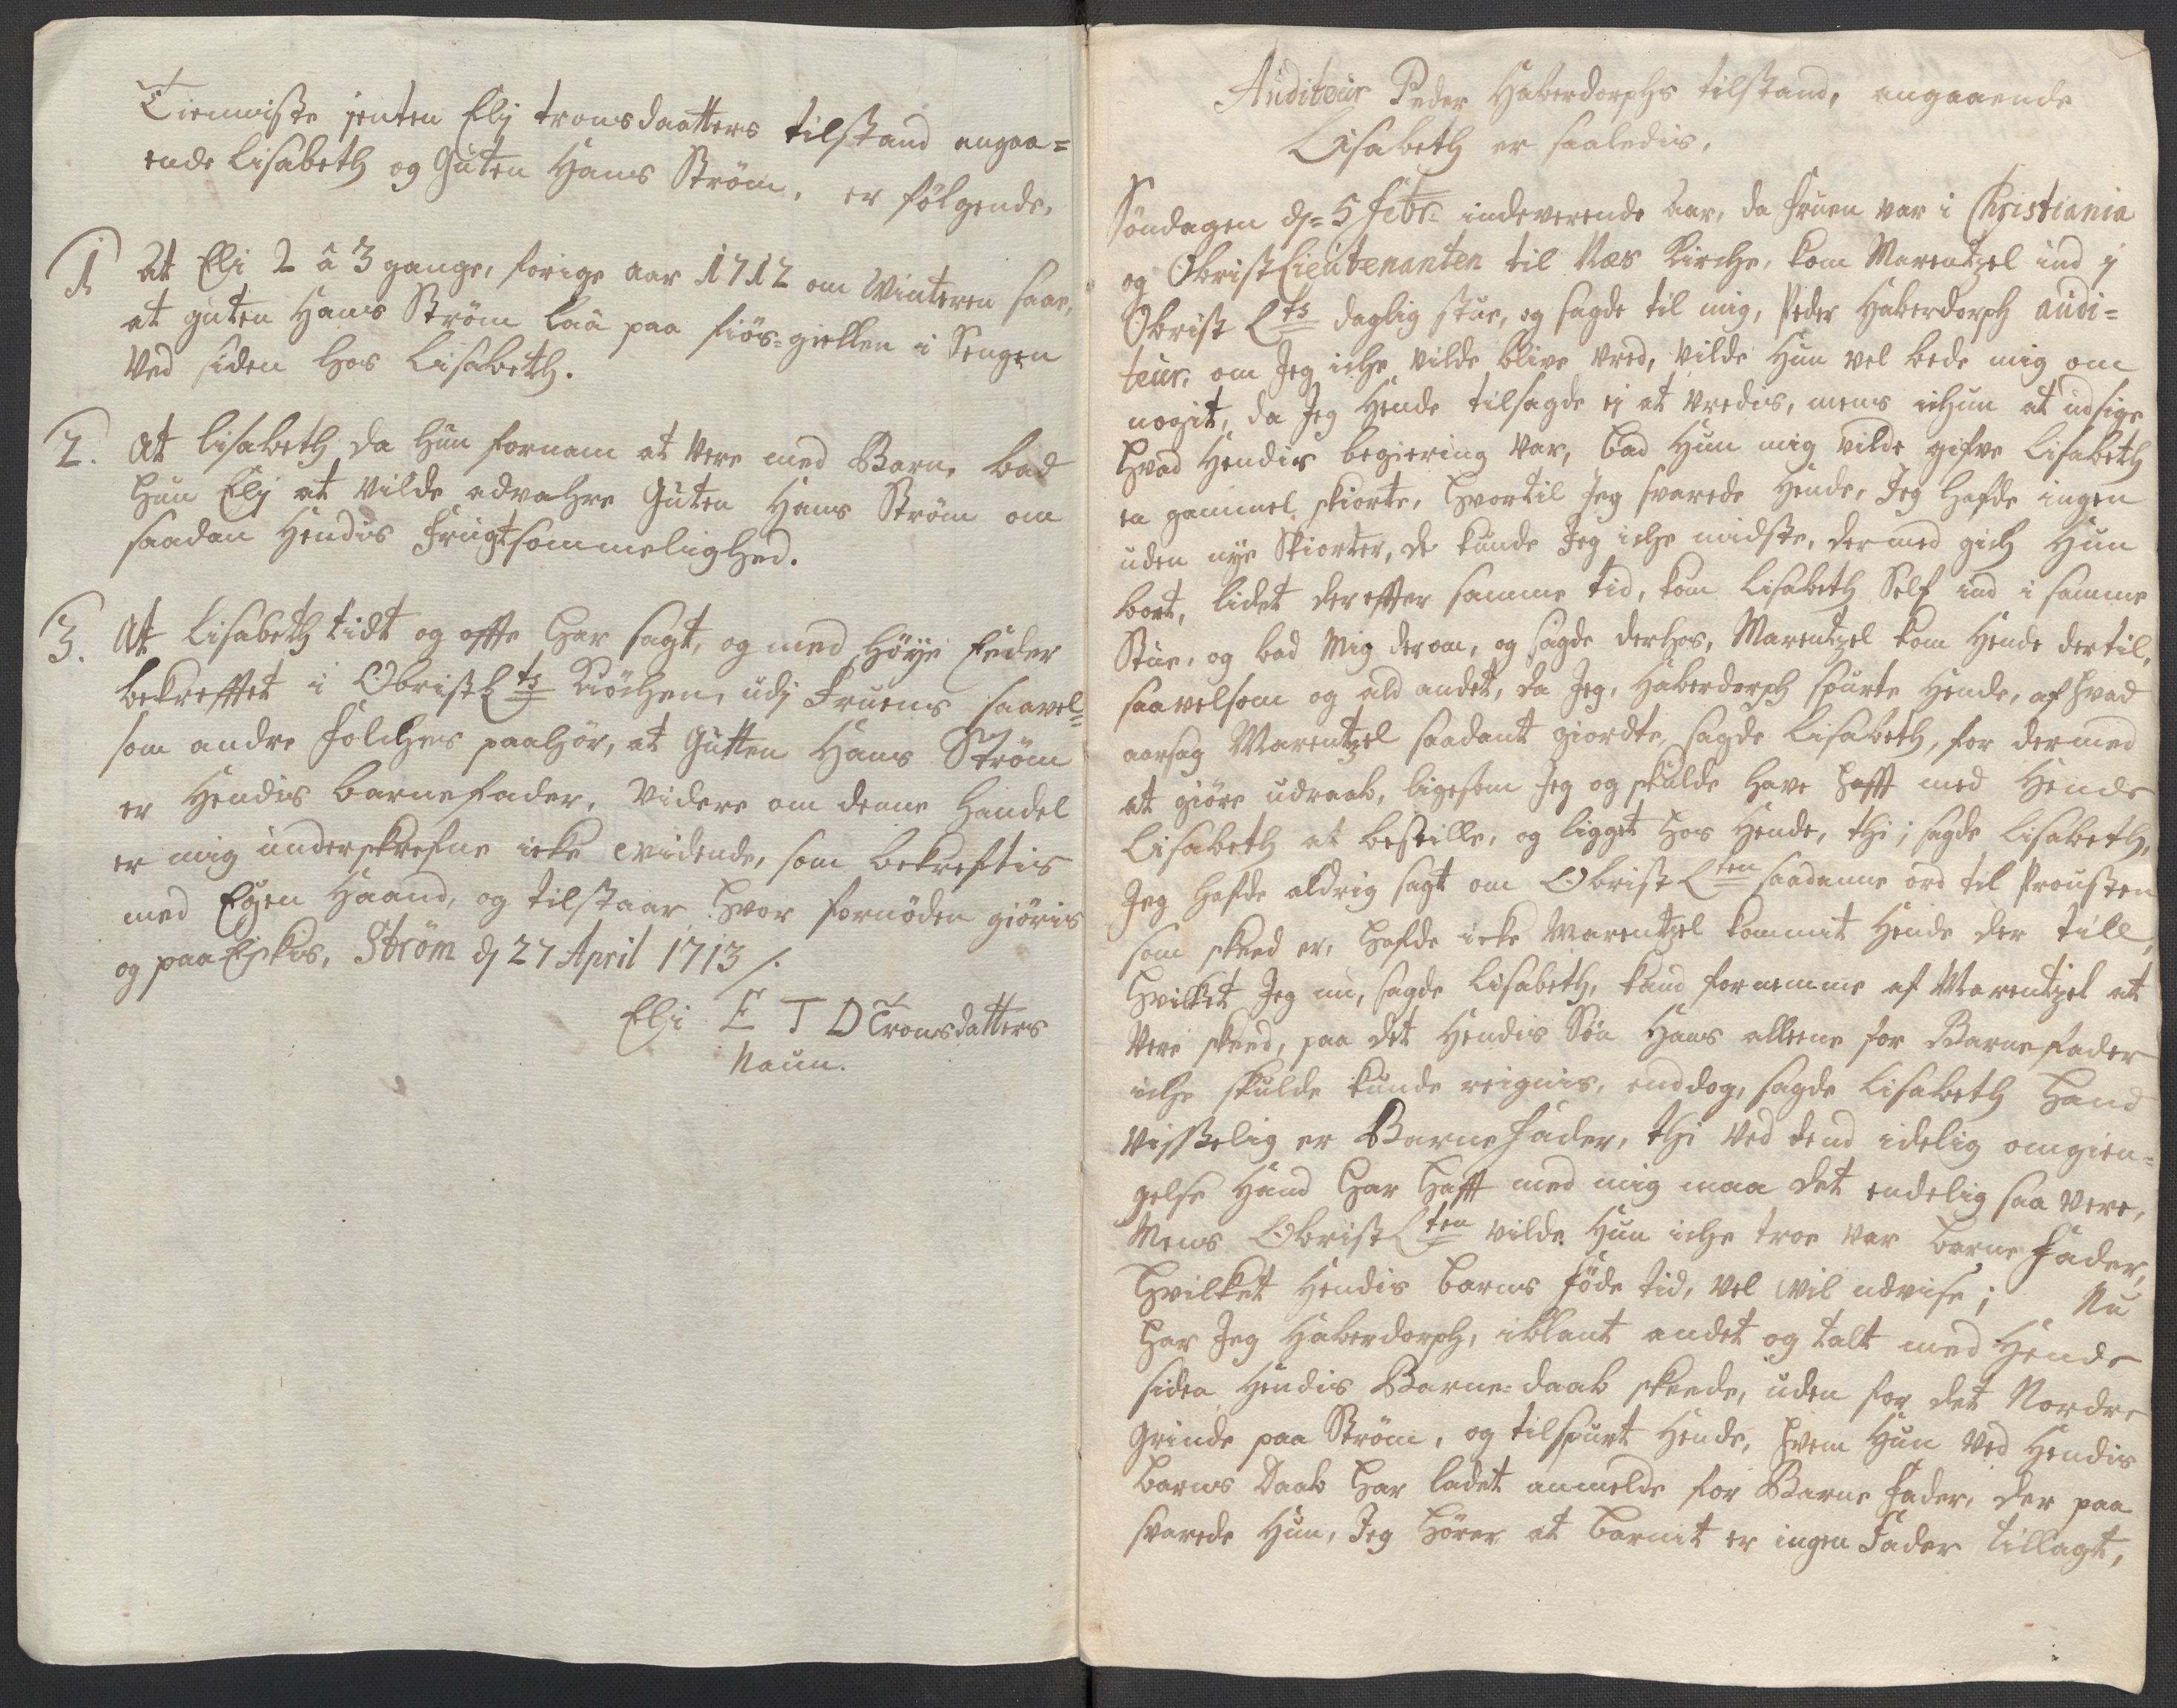 Tienniste jenten Elj tronsdaatters tilstand angaa=
ende Lisabeth og Guten Hans Ström, er fölgende,
1. At Eli 2 â 3 gange, forige aar 1712 om Winteren saae,
at guten Hans Ström laae paa fiös-giellen i Sengen
ved siden hos Lisabeth.
2. At Lisabeth da hun fornam at vere med Barn, bad
hun Elj at vilde advahre Guten Hans Ström om
saadan Hendis Frugtsommelighed.
3. At Lisabeth tidt og offte har sagt, og med höÿe Eeder
bekrefftet i Obrist Lts Kiöchen, udj Fruens saavel=
som andre Folches paahör, at Gutten Hans Ström
er Hendis barnefader, videre om denne handel
er mig underskrefne icke evidende, som bekreftis
med Egen Haand, og tilstaar hvor fornöden giöris
og paa Eskis, Ström dj 27 April 1713 /.
Elji E T D Tronsdatters
Naun.
Auditeur Peder Haberdorphs tilstand, angaaende
Lisabeth er saaledis,
Söndagen dj= 5 febr: indeverende aar, da Fruen var i Christiania
og ObristLieutenanten til Næs Kirche, kom Marentzel ind j
Obrist Lts daglig stue, og sagde til mig, Peder Haberdorph audi=
teur, om Jeg iche vilde blive vred, vilde Hun vel bede mig om
nogit, da Jeg Hende tilsagde ej at vredis, mens ichun at udsige
hvad Hendis begiering var, bad Hun mig vilde gifve Lisabeth
en gammel skiorte, hvortil Jeg svarede Hende, Jeg hafde ingen
uden nÿe Skiorter, de kunde Jeg iche midste, dermed gich Hun
bort, lidet derefter samme tid, kom Lisabeth Self ind i samme
Stue, og bad mig derom, og sagde derhos, Marentzel kom Hende dertil,
saavelsom og ald andet, da Jeg, Haberdorph spurte Hende, af hvad
aarsag Marentzel saadant giordte, sagde Lisabeth, for dermed
at giöre udraab, ligesom Jeg og skulde have hafft med Hende
Lisabeth at bestille, og ligget hos Hende, thi; sagde Lisabeth,
Jeg hafde aldrig sagt om Obrist Lten saadanne ord til Prousten
som skeed er, hafde icke Marentzel kommit Hende der till,
hvilket Jeg nu, sagde Lisabeth, kand fornemme af Marentzel at
vere skeed, paa det Hendis Sön Hans alleene for Barnefader
iche skulde kunde reignis, enddog, sagde Lisabeth hand
visselig er Barnefader, thi ved dend idelig omgien=
gelse Hand har hafft med mig maa det endelig saa vere,
Mens Obrist Lten vilde Hun iche troe var barnefader,
hvilket Hendis barns föde tid, vel vil udvise; Nu
har Jeg Haberdorph, iblant andet og talt med Hende
siden Hendis Barne=daab skeede, uden for det Nordre
grinde paa Ström, og tilspurt Hende, hvem Hun ved Hendis
barns daab har ladet anmelde for Barne fader, der paa
svarede Hun, Jeg hörer at barnit er ingen Fader tillagt,